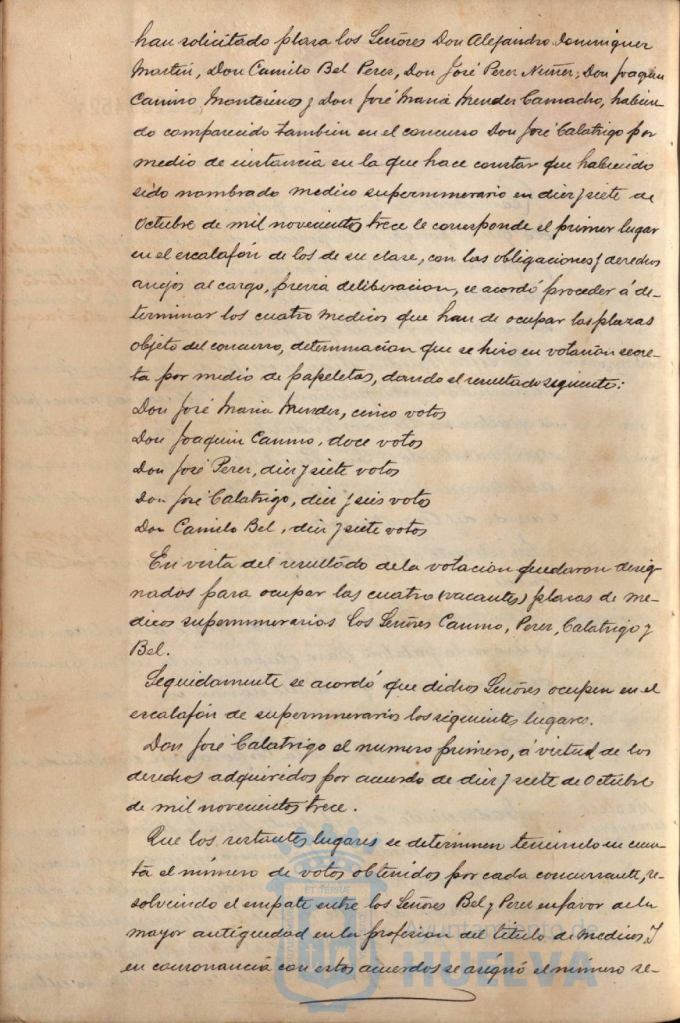 han solicitado plaza los Señores Don Alejandro Dominguez
Martin, Don Camilo Bel Perez, Don José Perez Nuñez, Don Joaquin
Canino Monteinos y Don José Maria Mendez Camacho, habien-
do comparecido tambien en el concurso Don José Calatrigo por
medio de instancia en la que hace constar que habiendo
sido nombrado medico supernumerario en diez y siete de
Octubre de mil novecientos trece le corresponde el primer lugar
en el escalafón de los de su clase, con las obligaciones y derechos
anejos al cargo, previa deliberacion, se acordó proceder á de-
terminar los cuatro medicos que han de ocupar las plazas
objeto del concurso, determinacion que se hizo en votacion secre-
ta por medio de papeletas, dando el resultado siguiente:
Don José Maria Mendez, cinco votos
Don Joaquin Canino, doce votos
Don José Perez, diez y siete votos
Don José Calatrigo, diez y seis votos
Don Camilo Bel, diez y siete votos
En vista del resultado de la votacion quedaron desig-
nados para ocupar las cuatro (vacantes) plazas de me-
dicos supernumerarios los Señores Canino, Perez, Calatrigo y
Bel.
Seguidamente se acordó que dichos Señores ocupen en el
escalafón de supernumerarios los siguientes lugares.
Don José Calatrigo el numero primero, á virtud de los
derechos adquiridos por acuerdo de diez y siete de Octubre
de mil novecientos trece.
Que los restantes lugares se determinen teniendo en cuen-
ta el número de votos obtenidos por cada concursante, re-
solviendo el empate entre los Señores Bel y Perez en favor de la
mayor antigüedad en la profesion del titulo de medicos. Y
en consonancia con estos acuerdos se asignó el número se-
Ayuntamiento de
HUELVA